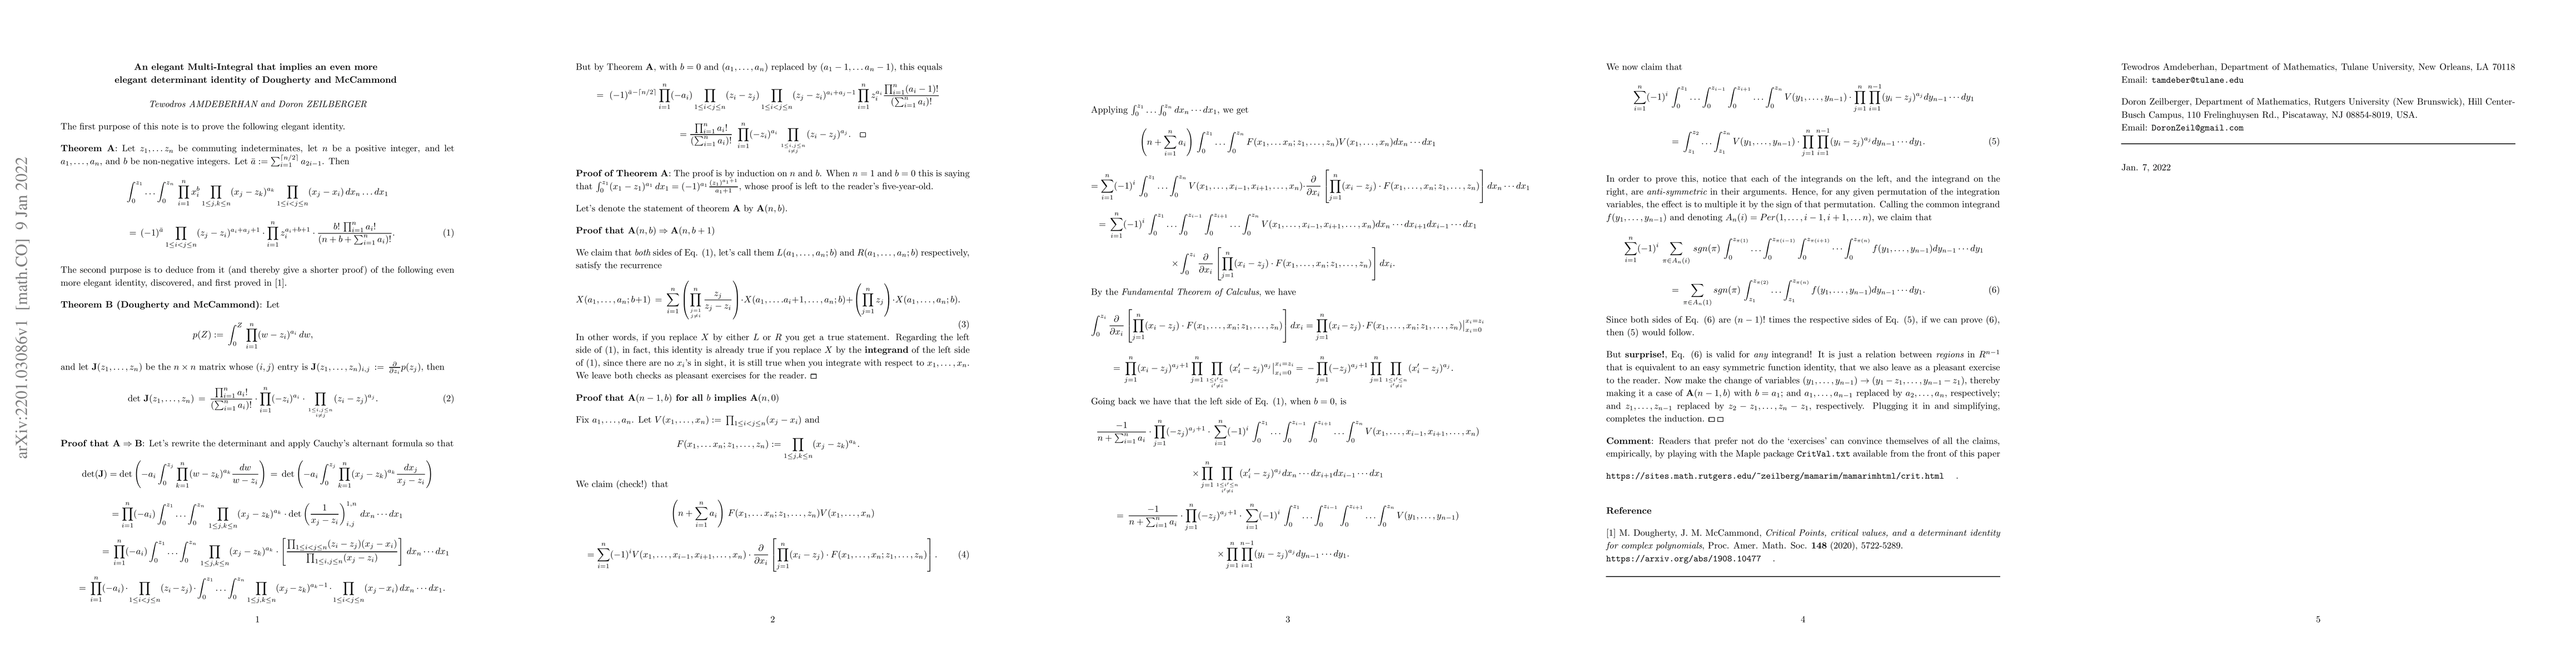 arXiv:2201.03086v1 [math.CO] 9 Jan 2022
An elegant Multi-Integral that implies an even more
elegant determinant identity of Dougherty and McCammond
Tewodros AMDEBERHAN and Doron ZEILBERGER
The first purpose of this note is to prove the following elegant identity.
Theorem A: Let z_1, . . . z_n be commuting indeterminates, let n be a positive integer, and let
a_1, . . . , a_n, and b be non-negative integers. Let ā := ∑_{i=1}^{⌈n/2⌉} a_{2i−1}. Then
∫_0^{z_1} . . . ∫_0^{z_n} ∏_{i=1}^n x_i^b ∏_{1≤j,k≤n} (x_j − z_k)^{a_k} ∏_{1≤i<j≤n} (x_j − x_i) dx_n . . . dx_1
= (−1)^ā ∏_{1≤i<j≤n} (z_j − z_i)^{a_i+a_j+1} · ∏_{i=1}^n z_i^{a_i+b+1} · b! ∏_{i=1}^n a_i! / (n + b + ∑_{i=1}^n a_i)!. (1)
The second purpose is to deduce from it (and thereby give a shorter proof) of the following even
more elegant identity, discovered, and first proved in [1].
Theorem B (Dougherty and McCammond): Let
p(Z) := ∫_0^Z ∏_{i=1}^n (w − z_i)^{a_i} dw,
and let J(z_1, . . . , z_n) be the n × n matrix whose (i, j) entry is J(z_1, . . . , z_n)_{i,j} := ∂/∂z_i p(z_j), then
det J(z_1, . . . , z_n) = ∏_{i=1}^n a_i! / (∑_{i=1}^n a_i)! · ∏_{i=1}^n (−z_i)^{a_i} · ∏_{1≤i,j≤n, i≠j} (z_i − z_j)^{a_j}. (2)
Proof that A ⇒ B: Let's rewrite the determinant and apply Cauchy's alternant formula so that
det(J) = det ( −a_i ∫_0^{z_j} ∏_{k=1}^n (w − z_k)^{a_k} dw/(w − z_i) ) = det ( −a_i ∫_0^{z_j} ∏_{k=1}^n (x_j − z_k)^{a_k} dx_j/(x_j − z_i) )
= ∏_{i=1}^n (−a_i) ∫_0^{z_1} . . . ∫_0^{z_n} ∏_{1≤j,k≤n} (x_j − z_k)^{a_k} · det ( 1/(x_j − z_i) )_{i,j}^{1,n} dx_n · · · dx_1
= ∏_{i=1}^n (−a_i) ∫_0^{z_1} . . . ∫_0^{z_n} ∏_{1≤j,k≤n} (x_j − z_k)^{a_k} · [ ∏_{1≤i<j≤n} (z_i − z_j)(x_j − x_i) / ∏_{1≤i,j≤n} (x_j − z_i) ] dx_n · · · dx_1
= ∏_{i=1}^n (−a_i) · ∏_{1≤i<j≤n} (z_i − z_j) · ∫_0^{z_1} . . . ∫_0^{z_n} ∏_{1≤j,k≤n} (x_j − z_k)^{a_k−1} · ∏_{1≤i<j≤n} (x_j − x_i) dx_n · · · dx_1.
1
But by Theorem A, with b = 0 and (a_1, . . . , a_n) replaced by (a_1 − 1, . . . a_n − 1), this equals
= (−1)^{ā−⌈n/2⌉} ∏_{i=1}^n (−a_i) ∏_{1≤i<j≤n} (z_i − z_j) ∏_{1≤i<j≤n} (z_j − z_i)^{a_i+a_j−1} ∏_{i=1}^n z_i^{a_i} ∏_{i=1}^n (a_i − 1)! / (∑_{i=1}^n a_i)!
= ∏_{i=1}^n a_i! / (∑_{i=1}^n a_i)! ∏_{i=1}^n (−z_i)^{a_i} ∏_{1≤i,j≤n, i≠j} (z_i − z_j)^{a_j}. □
Proof of Theorem A: The proof is by induction on n and b. When n = 1 and b = 0 this is saying
that ∫_0^{z_1} (x_1 − z_1)^{a_1} dx_1 = (−1)^{a_1} (z_1)^{a_1+1}/(a_1+1), whose proof is left to the reader's five-year-old.
Let's denote the statement of theorem A by A(n, b).
Proof that A(n, b) ⇒ A(n, b + 1)
We claim that both sides of Eq. (1), let's call them L(a_1, . . . , a_n; b) and R(a_1, . . . , a_n; b) respectively,
satisfy the recurrence
X(a_1, . . . , a_n; b+1) = ∑_{i=1}^n ( ∏_{j=1, j≠i}^n z_j/(z_j − z_i) ) · X(a_1, . . . . a_i+1, . . . , a_n; b) + ( ∏_{j=1}^n z_j ) · X(a_1, . . . , a_n; b).
(3)
In other words, if you replace X by either L or R you get a true statement. Regarding the left
side of (1), in fact, this identity is already true if you replace X by the integrand of the left side
of (1), since there are no x_i's in sight, it is still true when you integrate with respect to x_1, . . . , x_n.
We leave both checks as pleasant exercises for the reader. □
Proof that A(n − 1, b) for all b implies A(n, 0)
Fix a_1, . . . , a_n. Let V(x_1, . . . , x_n) := ∏_{1≤i<j≤n} (x_j − x_i) and
F(x_1, . . . x_n; z_1, . . . , z_n) := ∏_{1≤j,k≤n} (x_j − z_k)^{a_k}.
We claim (check!) that
( n + ∑_{i=1}^n a_i ) F(x_1, . . . x_n; z_1, . . . , z_n)V(x_1, . . . , x_n)
= ∑_{i=1}^n (−1)^i V(x_1, . . . , x_{i−1}, x_{i+1}, . . . , x_n) · ∂/∂x_i [ ∏_{j=1}^n (x_i − z_j) · F(x_1, . . . , x_n; z_1, . . . , z_n) ]. (4)
2
Applying ∫_0^{z_1} . . . ∫_0^{z_n} dx_n · · · dx_1, we get
( n + ∑_{i=1}^n a_i ) ∫_0^{z_1} . . . ∫_0^{z_n} F(x_1, . . . x_n; z_1, . . . , z_n)V(x_1, . . . , x_n)dx_n · · · dx_1
= ∑_{i=1}^n (−1)^i ∫_0^{z_1} . . . ∫_0^{z_n} V(x_1, . . . , x_{i−1}, x_{i+1}, . . . , x_n) · ∂/∂x_i [ ∏_{j=1}^n (x_i − z_j) · F(x_1, . . . , x_n; z_1, . . . , z_n) ] dx_n · · · dx_1
= ∑_{i=1}^n (−1)^i ∫_0^{z_1} . . . ∫_0^{z_{i−1}} ∫_0^{z_{i+1}} . . . ∫_0^{z_n} V(x_1, . . . , x_{i−1}, x_{i+1}, . . . , x_n)dx_n · · · dx_{i+1}dx_{i−1} · · · dx_1
× ∫_0^{z_i} ∂/∂x_i [ ∏_{j=1}^n (x_i − z_j) · F(x_1, . . . , x_n; z_1, . . . , z_n) ] dx_i.
By the Fundamental Theorem of Calculus, we have
∫_0^{z_i} ∂/∂x_i [ ∏_{j=1}^n (x_i − z_j) · F(x_1, . . . , x_n; z_1, . . . , z_n) ] dx_i = ∏_{j=1}^n (x_i − z_j) · F(x_1, . . . , x_n; z_1, . . . , z_n)|_{x_i=0}^{x_i=z_i}
= ∏_{j=1}^n (x_i − z_j)^{a_j+1} ∏_{j=1}^n ∏_{1≤i'≤n, i'≠i} (x'_i − z_j)^{a_j}|_{x_i=0}^{x_i=z_i} = − ∏_{j=1}^n (−z_j)^{a_j+1} ∏_{j=1}^n ∏_{1≤i'≤n, i'≠i} (x'_i − z_j)^{a_j}.
Going back we have that the left side of Eq. (1), when b = 0, is
−1/(n + ∑_{i=1}^n a_i) · ∏_{j=1}^n (−z_j)^{a_j+1} · ∑_{i=1}^n (−1)^i ∫_0^{z_1} . . . ∫_0^{z_{i−1}} ∫_0^{z_{i+1}} . . . ∫_0^{z_n} V(x_1, . . . , x_{i−1}, x_{i+1}, . . . , x_n)
× ∏_{j=1}^n ∏_{1≤i'≤n, i'≠i} (x'_i − z_j)^{a_j} dx_n · · · dx_{i+1}dx_{i−1} · · · dx_1
= −1/(n + ∑_{i=1}^n a_i) · ∏_{j=1}^n (−z_j)^{a_j+1} · ∑_{i=1}^n (−1)^i ∫_0^{z_1} . . . ∫_0^{z_{i−1}} ∫_0^{z_{i+1}} . . . ∫_0^{z_n} V(y_1, . . . , y_{n−1})
× ∏_{j=1}^n ∏_{i=1}^{n−1} (y_i − z_j)^{a_j} dy_{n−1} · · · dy_1.
3
We now claim that
∑_{i=1}^n (−1)^i ∫_0^{z_1} . . . ∫_0^{z_{i−1}} ∫_0^{z_{i+1}} . . . ∫_0^{z_n} V(y_1, . . . , y_{n−1}) · ∏_{j=1}^n ∏_{i=1}^{n−1} (y_i − z_j)^{a_j} dy_{n−1} · · · dy_1
= ∫_{z_1}^{z_2} . . . ∫_{z_1}^{z_n} V(y_1, . . . , y_{n−1}) · ∏_{j=1}^n ∏_{i=1}^{n−1} (y_i − z_j)^{a_j} dy_{n−1} · · · dy_1. (5)
In order to prove this, notice that each of the integrands on the left, and the integrand on the
right, are anti-symmetric in their arguments. Hence, for any given permutation of the integration
variables, the effect is to multiple it by the sign of that permutation. Calling the common integrand
f(y_1, . . . , y_{n−1}) and denoting A_n(i) = Per(1, . . . , i − 1, i + 1, . . . n), we claim that
∑_{i=1}^n (−1)^i ∑_{π∈A_n(i)} sgn(π) ∫_0^{z_{π(1)}} . . . ∫_0^{z_{π(i−1)}} ∫_0^{z_{π(i+1)}} · · · ∫_0^{z_{π(n)}} f(y_1, . . . , y_{n−1})dy_{n−1} · · · dy_1
= ∑_{π∈A_n(1)} sgn(π) ∫_{z_1}^{z_{π(2)}} . . . ∫_{z_1}^{z_{π(n)}} f(y_1, . . . , y_{n−1})dy_{n−1} · · · dy_1. (6)
Since both sides of Eq. (6) are (n − 1)! times the respective sides of Eq. (5), if we can prove (6),
then (5) would follow.
But surprise!, Eq. (6) is valid for any integrand! It is just a relation between regions in R^{n−1}
that is equivalent to an easy symmetric function identity, that we also leave as a pleasant exercise
to the reader. Now make the change of variables (y_1, . . . , y_{n−1}) → (y_1 − z_1, . . . , y_{n−1} − z_1), thereby
making it a case of A(n − 1, b) with b = a_1; and a_1, . . . , a_{n−1} replaced by a_2, . . . , a_n, respectively;
and z_1, . . . , z_{n−1} replaced by z_2 − z_1, . . . , z_n − z_1, respectively. Plugging it in and simplifying,
completes the induction. □□
Comment: Readers that prefer not do the 'exercises' can convince themselves of all the claims,
empirically, by playing with the Maple package CritVal.txt available from the front of this paper
https://sites.math.rutgers.edu/~zeilberg/mamarim/mamarimhtml/crit.html .
Reference
[1] M. Dougherty, J. M. McCammond, Critical Points, critical values, and a determinant identity
for complex polynomials, Proc. Amer. Math. Soc. 148 (2020), 5722-5289.
https://arxiv.org/abs/1908.10477 .
4
Tewodros Amdeberhan, Department of Mathematics, Tulane University, New Orleans, LA 70118
Email: tamdeber@tulane.edu
Doron Zeilberger, Department of Mathematics, Rutgers University (New Brunswick), Hill Center-
Busch Campus, 110 Frelinghuysen Rd., Piscataway, NJ 08854-8019, USA.
Email: DoronZeil@gmail.com
Jan. 7, 2022
5